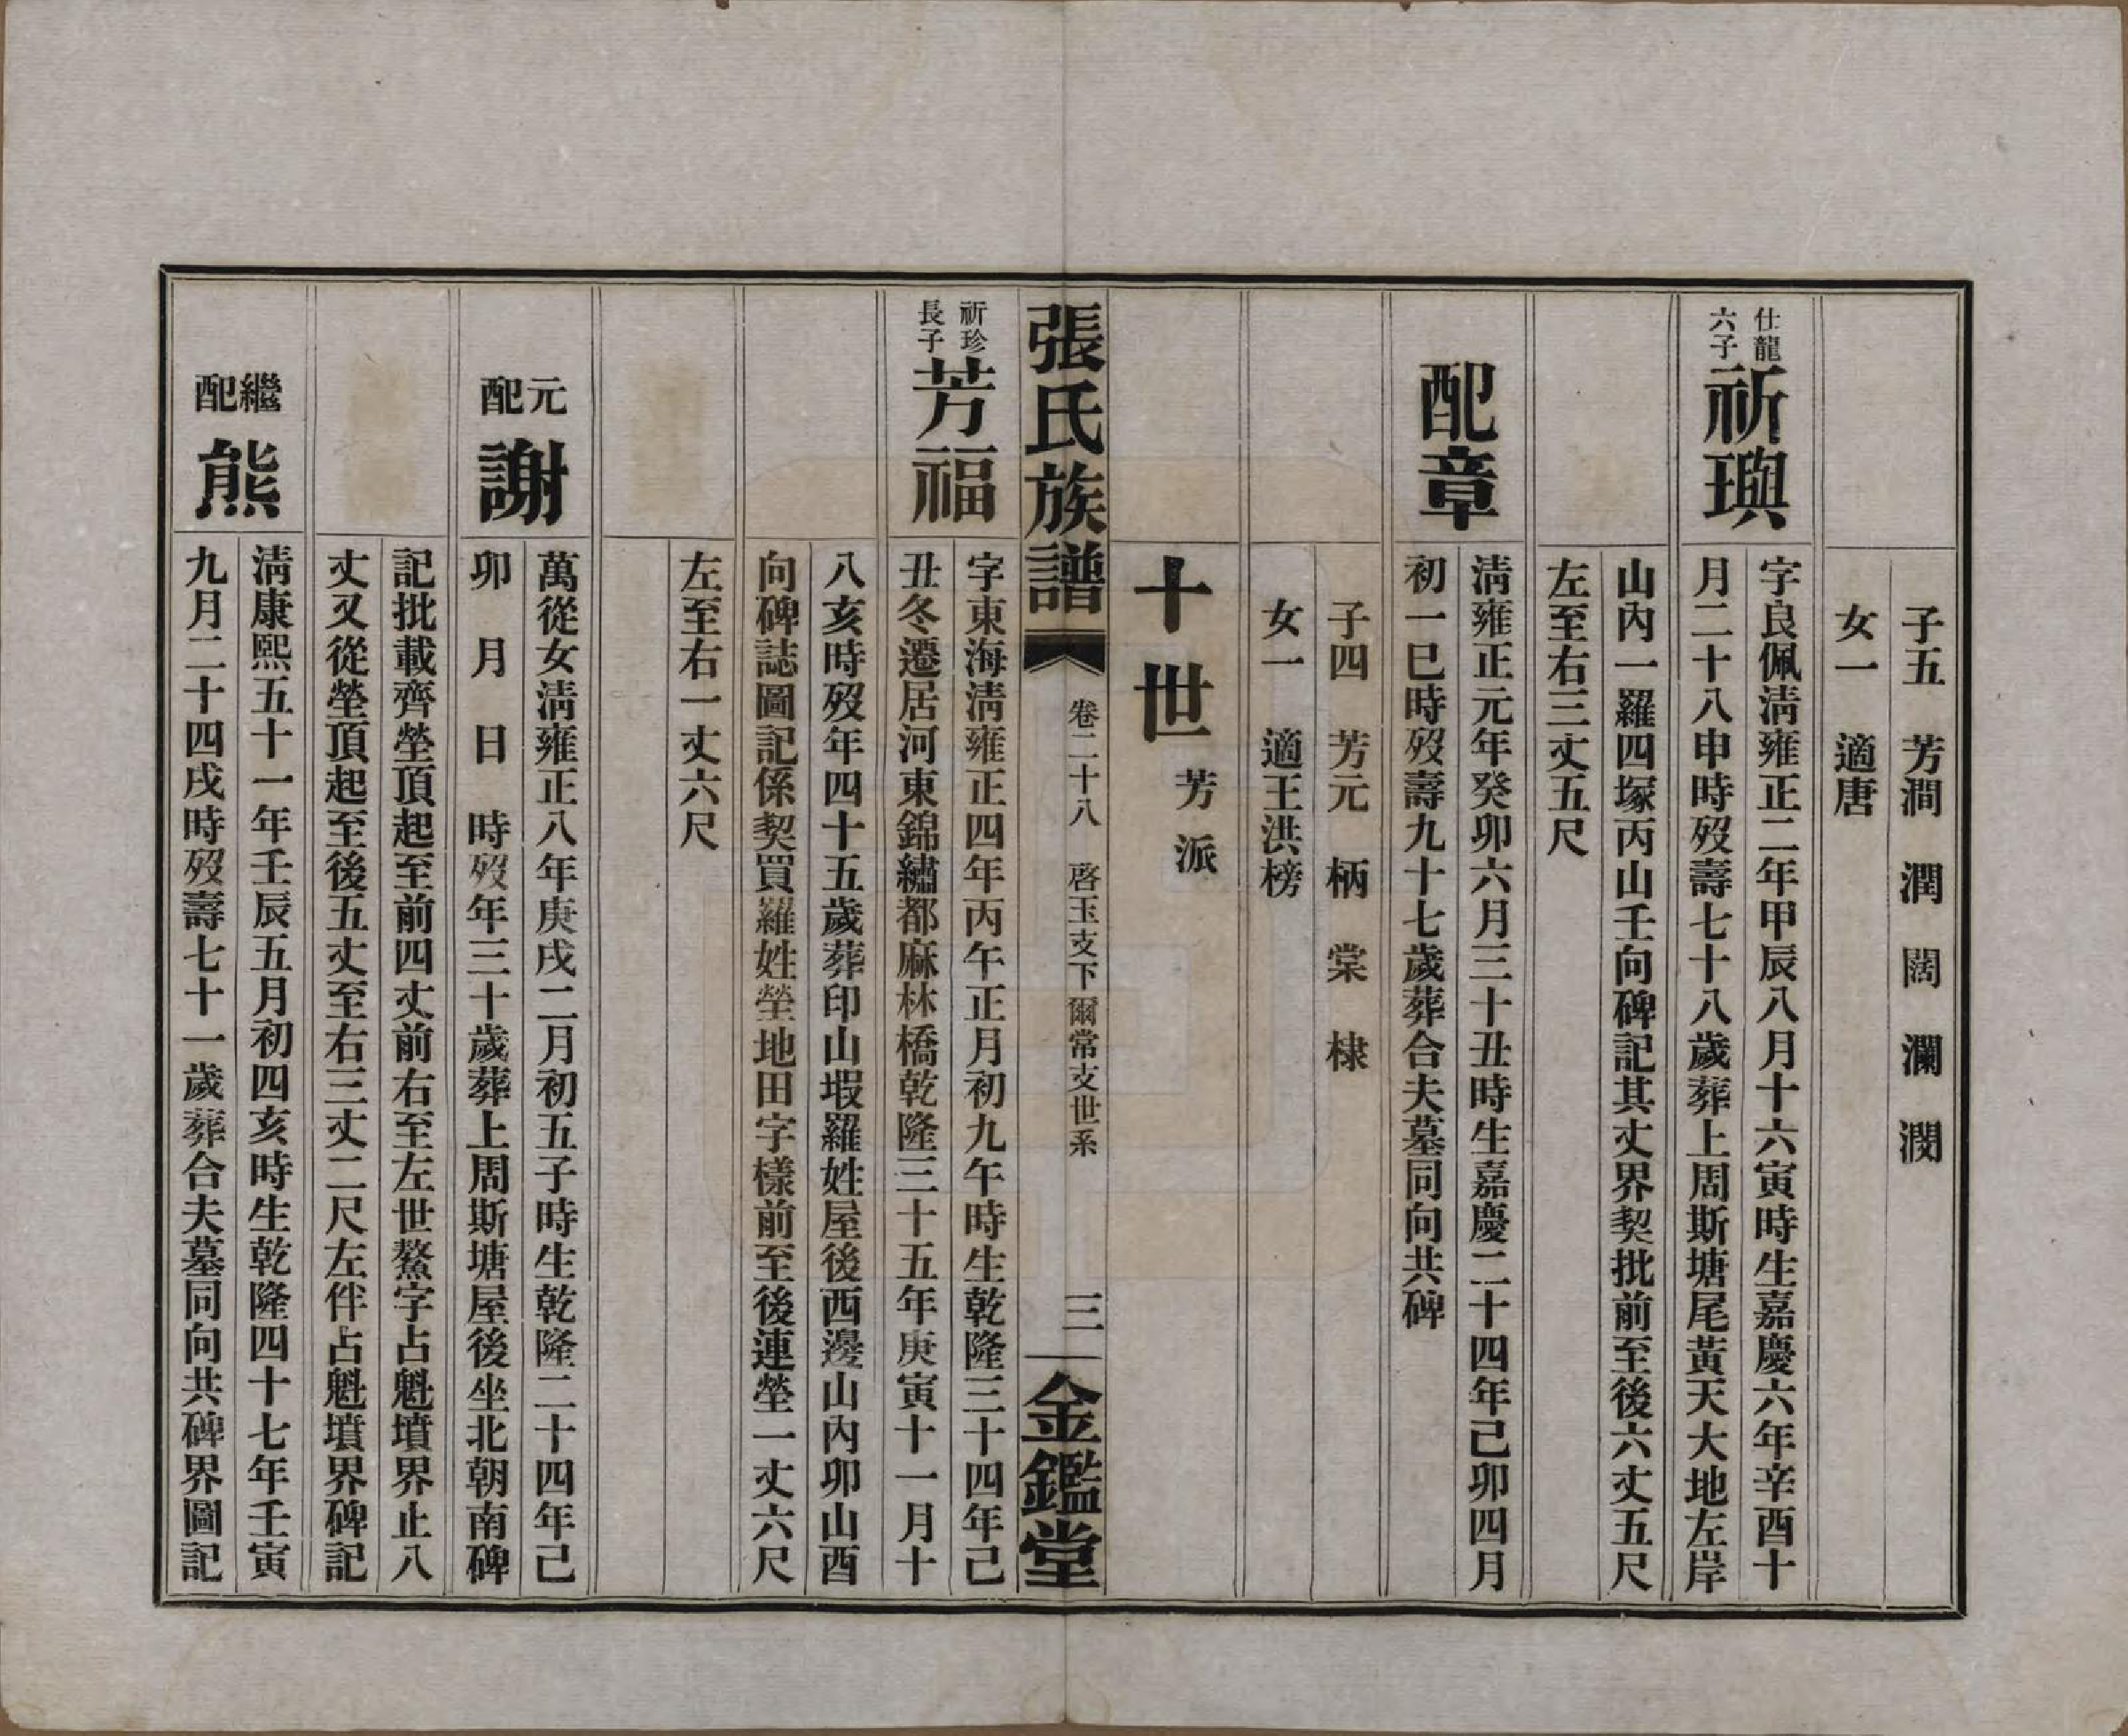 子五 芳澗 潤 闊 瀾 濶
女一 適唐
仕龍
六子
祈璵
字良佩淸雍正二年甲辰八月十六寅時生嘉慶六年辛酉十
月二十八申時歿壽七十八歲葬上周斯塘尾黃天大地左岸
山內一羅四塚丙山壬向碑記其丈界契批前至後六丈五尺
左至右三丈五尺
配章
淸雍正元年癸卯六月三十丑時生嘉慶二十四年己卯四月
初一巳時歿壽九十七歲葬合夫墓同向共碑
子四 芳元 柄 棠 棣
女一 適王洪榜
十世 芳派
張氏族譜
卷二十八 啓玉支下爾常支世系
三
金鑑堂
祈珍
長子
芳福
字東海淸雍正四年丙午正月初九午時生乾隆三十四年己
丑冬遷居河東錦繡都麻林橋乾隆三十五年庚寅十一月十
八亥時歿年四十五歲葬印山塅羅姓屋後西邊山內卯山酉
向碑誌圖記係契買羅姓塋地田字樣前至後連塋一丈六尺
左至右一丈六尺
元配 謝
萬從女淸雍正八年庚戌二月初五子時生乾隆二十四年己
卯 月 日 時歿年三十歲葬上周斯塘屋後坐北朝南碑
記批載齊塋頂起至前四丈前右至左世鰲字占魁墳界止八
丈又從塋頂起至後五丈至右三丈二尺左伴占魁墳界碑記
繼配 熊
淸康熙五十一年壬辰五月初四亥時生乾隆四十七年壬寅
九月二十四戌時歿壽七十一歲葬合夫墓同向共碑界圖記